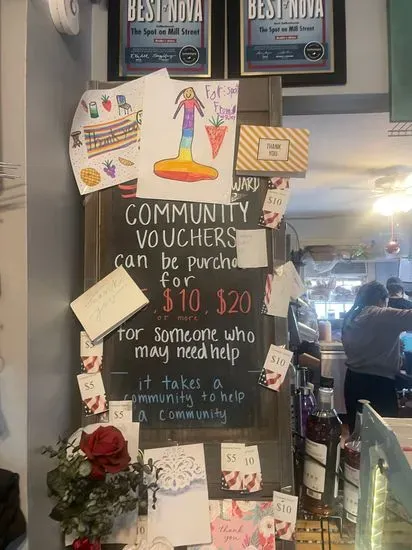 BEST of NOVA
The Spot on Mill Street
BEST of NOVA
The Spot on Mill Street
For: Spot
From:
THANK
YOU
$10
COMMUNITY
VOUCHERS
can be purcha
for
$10, $20
or more
for someone who
may need help
it takes a
community to help
a community
$10
$5
$5
$5
$5
10
$10
thank you